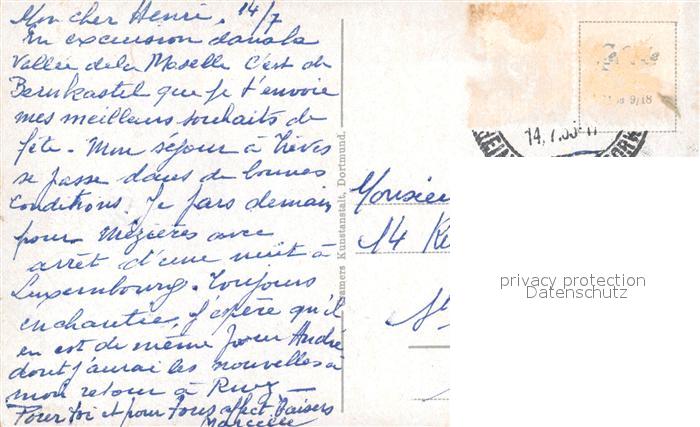 Mon cher Henri, 14/7
En excursion dans la
Vallée de la Moselle c'est de
Bernkastel que je t'envoie
mes meilleurs souhaits de
fête. Mon séjour à Trèves
se passe dans de bonnes
conditions. Je pars demain
pour Mézières avec
arrêt d'une nuit à
Luxembourg. Toujours
enchantée, j'espère qu'il
en est de même pour André
dont j'aurai les nouvelles à
mon retour à
Pour toi et pour tous affect. baisers
Marcelle
Cramers Kunstanstalt, Dortmund.
14.7.
Monsieu
14
privacy protection
Datenschutz